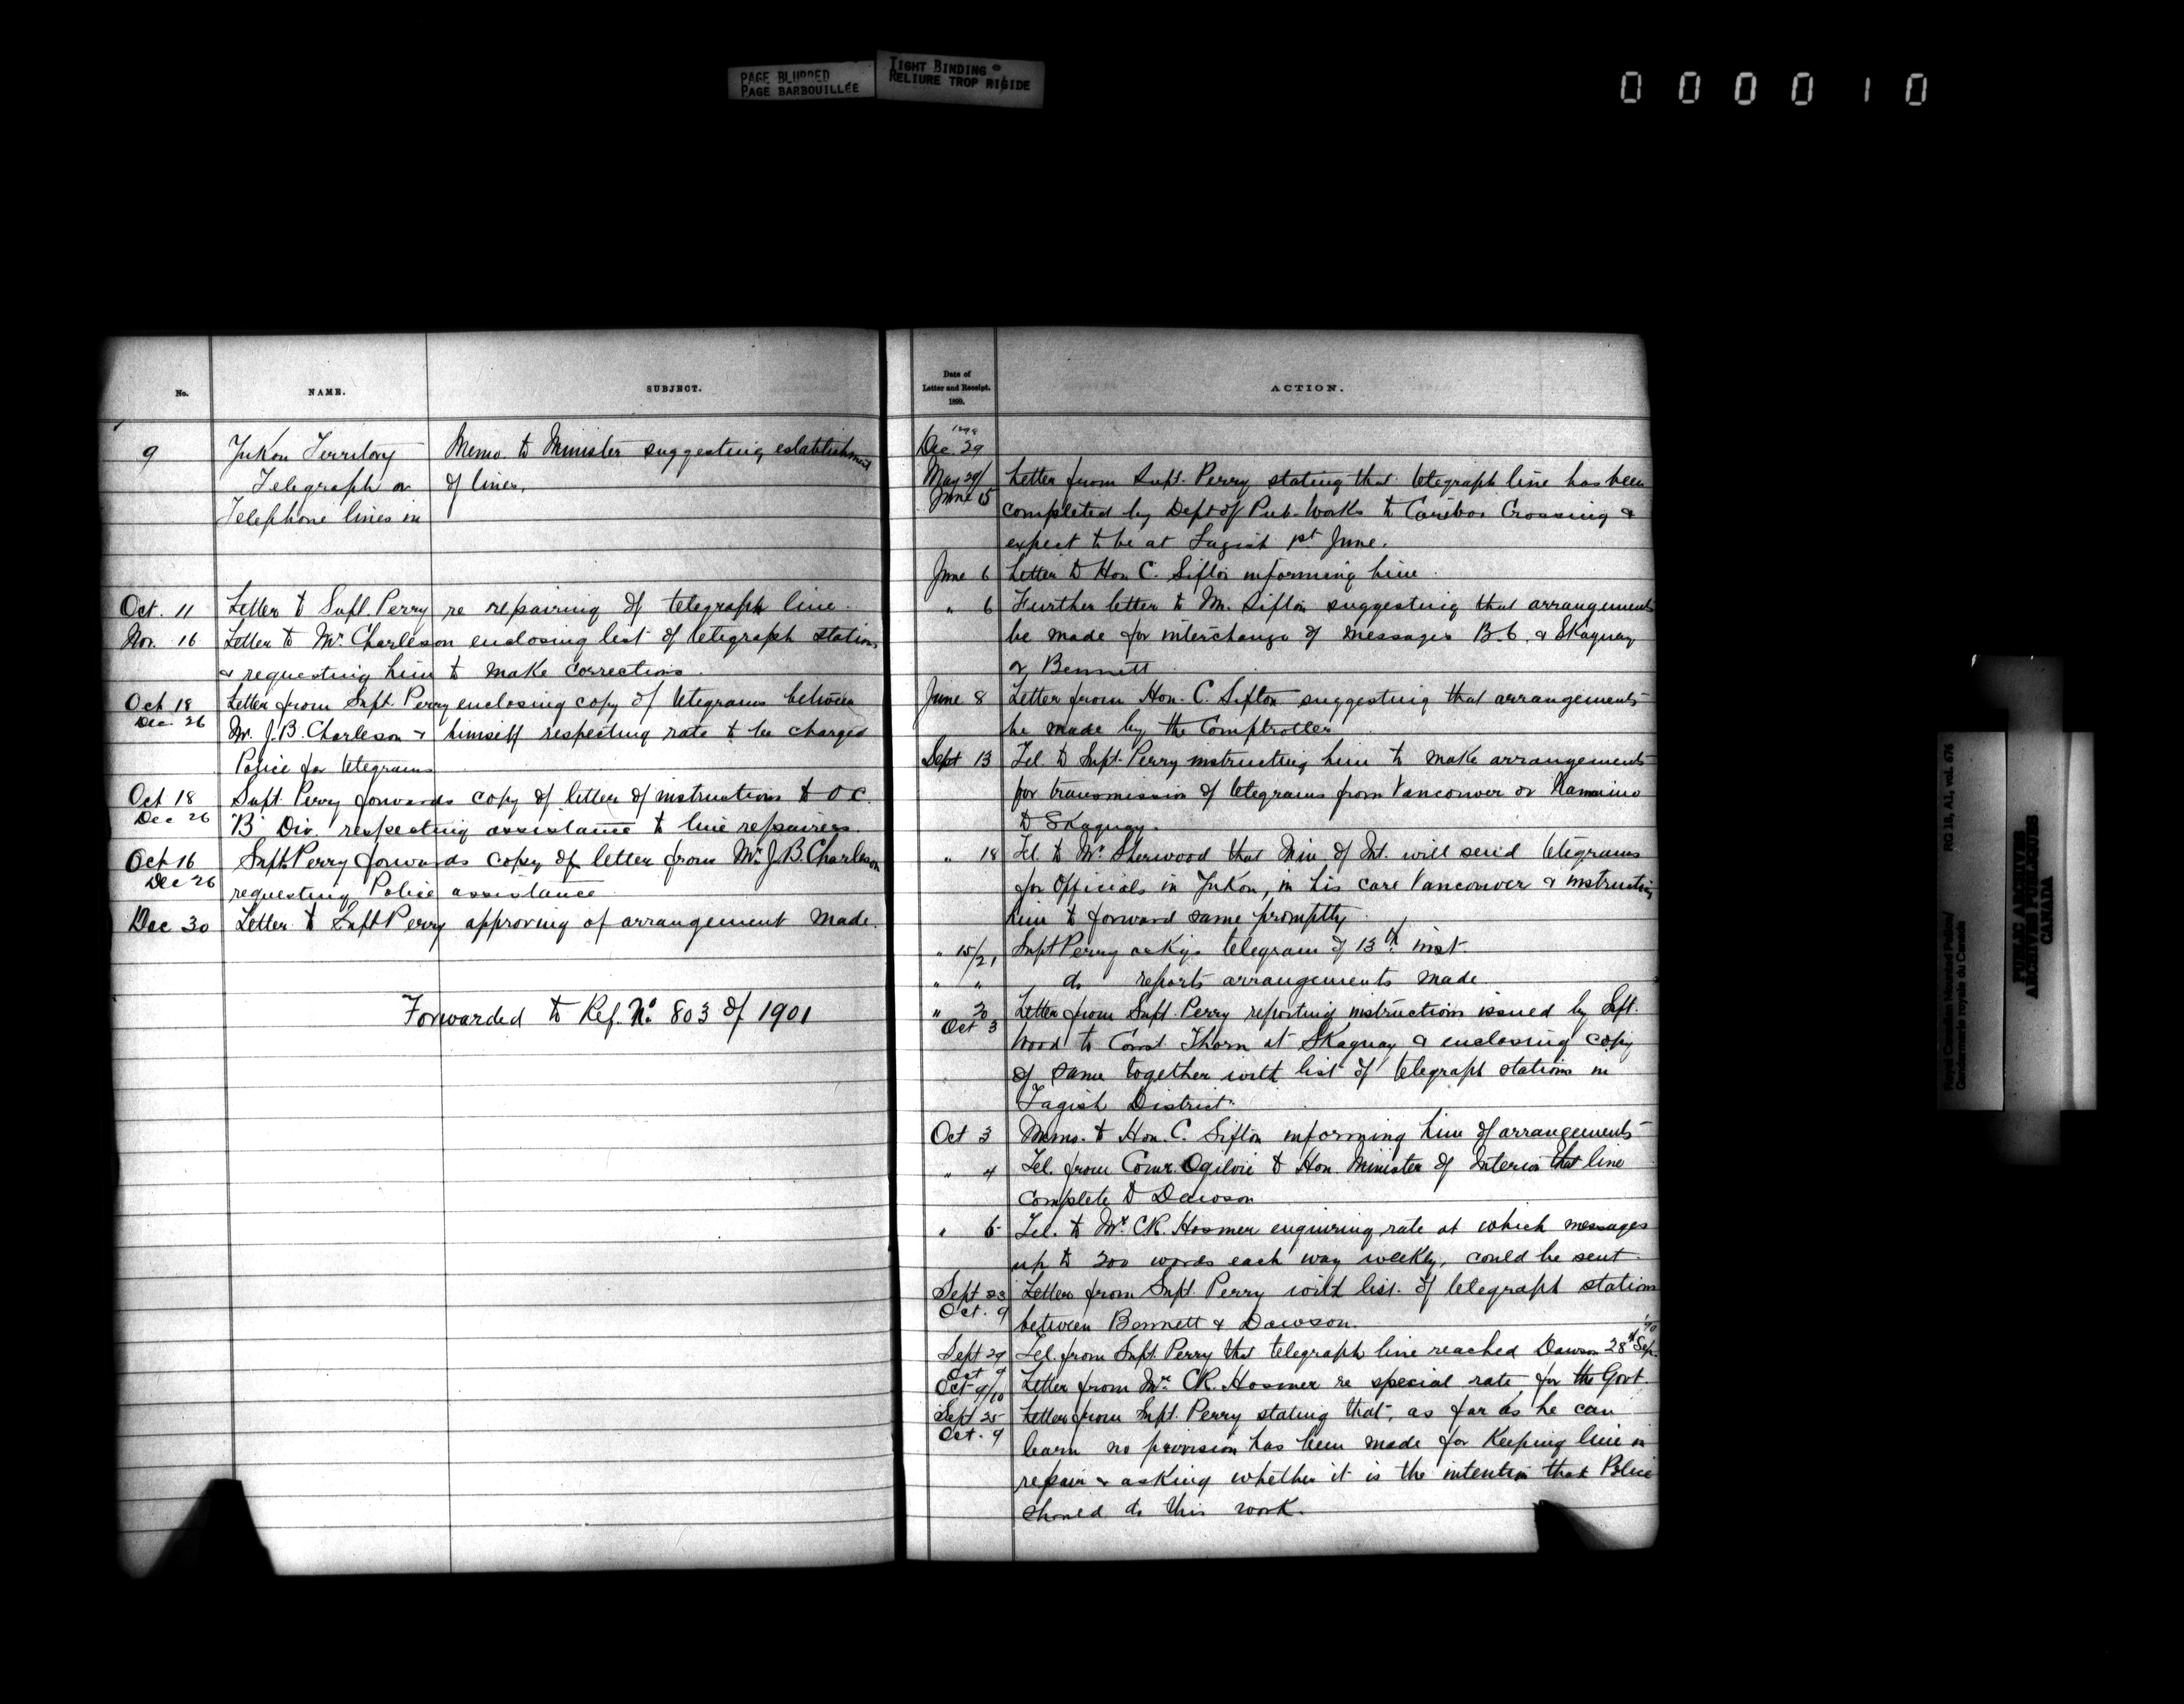 PAGE BLURRED
PAGE BARBOUILLÉE
TIGHT BINDING
RELIURE TROP RIGIDE
000010
No.
NAME.
SUBJECT.
9
Yukon Territory
Telegraph or
Telephone lines in
Memo. to Minister suggesting establishment
of lines.
Oct. 11 Letter to Supt. Perry re repairing of telegraph line.
Nov. 16 Letter to Mr. Charleson enclosing list of telegraph stations
& requesting him to make corrections.
Oct 18 Letter from Supt. Perry enclosing copy of telegrams between
Dec. 26 Mr. J.B. Charleson & himself respecting rate to be charged
Police for telegrams
Oct 18 Supt. Perry forwards copy of letter of instructions to O.C.
Dec 26 "B" Div. respecting assistance to line repairers.
Oct 16 Supt. Perry forwards copy of letter from Mr. J.B. Charleson
Dec 26 requesting Police assistance
Dec 30 Letter to Supt Perry approving of arrangement made.
Forwarded to Ref. No. 803 of 1901
Date of
Letter and Receipt.
1899.
ACTION.
1898
Dec. 29
May 29/ Letter from Supt. Perry stating that telegraph line has been
June 15 completed by Dept of Pub. Works to Caribou Crossing &
expect to be at Tagish 1st June.
June 6 Letter to Hon C. Sifton informing him.
" 6 Further letter to Mr. Sifton suggesting that arrangements
be made for interchange of messages B.C. & Skaguay
or Bennett.
June 8 Letter from Hon. C. Sifton suggesting that arrangements
be made by the Comptroller
Sept 13 Tel. to Supt. Perry instructing him to make arrangements
for transmission of telegrams from Vancouver or Nanaimo
to Skaguay.
" 18 Tel. to Mr. Sherwood that Min. of Int. will send telegrams
for Officials in Yukon, in his care Vancouver & instructing
him to forward same promptly.
" 15/21 Supt Perry ackgs telegram of 13th inst.
" " do reports arrangements made
" 20 Letter from Supt. Perry reporting instructions issued by Supt.
Oct 3 Wood to Const Thorn at Skaguay & enclosing copy
of same together with list of telegraph stations in
Tagish District.
Oct 3 Memo. to Hon. C. Sifton informing him of arrangements
" 4 Tel. from Comr. Ogilvie to Hon. Minister of Interior that line
complete to Dawson
" 6 Tel. to Mr. C.R. Hosmer enquiring rate at which messages
up to 200 words each way weekly, could be sent
Sept 23 Letter from Supt. Perry with list of telegraph stations
Oct. 9 between Bennett & Dawson.
Sept 29 Tel. from Supt. Perry that telegraph line reached Dawson 28th Sep.
Oct 9
Oct 9/10 Letter from Mr. C.R. Hosmer re special rate for the Govt.
Sept 25 Letter from Supt. Perry stating that, as far as he can
Oct. 9 learn no provision has been made for keeping line in
repair & asking whether it is the intention that Police
should do this work.
Royal Canadian Mounted Police/
Gendarmerie royale du Canada
RG 18, A1, vol. 676
PUBLIC ARCHIVES
ARCHIVES PUBLIQUES
CANADA